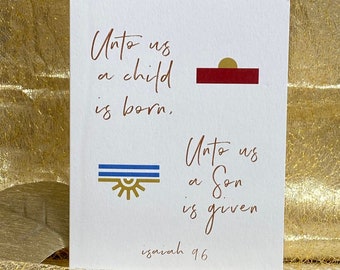 Unto us
a child
is born,
Unto us
a Son
is given
isaiah 9:6